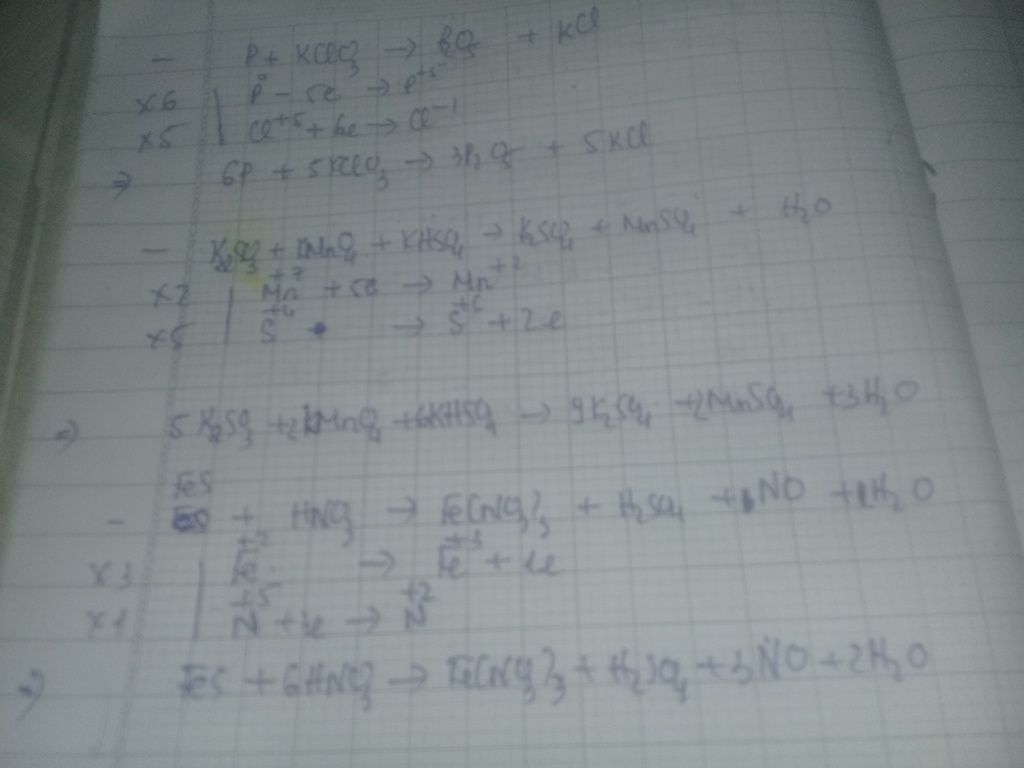 - P + KClO3 → P2O5 + KCl
x6 | P0 - 5e → P+5
x5 | Cl+5 + 6e → Cl-1
⇒ 6P + 5KClO3 → 3P2O5 + 5KCl
- K2SO3 + KMnO4 + KHSO4 → K2SO4 + MnSO4 + H2O
x2 | Mn+7 + 5e → Mn+2
x5 | S+4 → S+6 + 2e
⇒ 5K2SO3 + 2KMnO4 + 6KHSO4 → 9K2SO4 + 2MnSO4 + 3H2O
FeS
- + HNO3 → Fe(NO3)3 + H2SO4 + NO + H2O
x3 | Fe+2 → Fe+3 + 1e
x1 | N+5 + e → N+2
⇒ FeS + 6HNO3 → Fe(NO3)3 + H2SO4 + 3NO + 2H2O